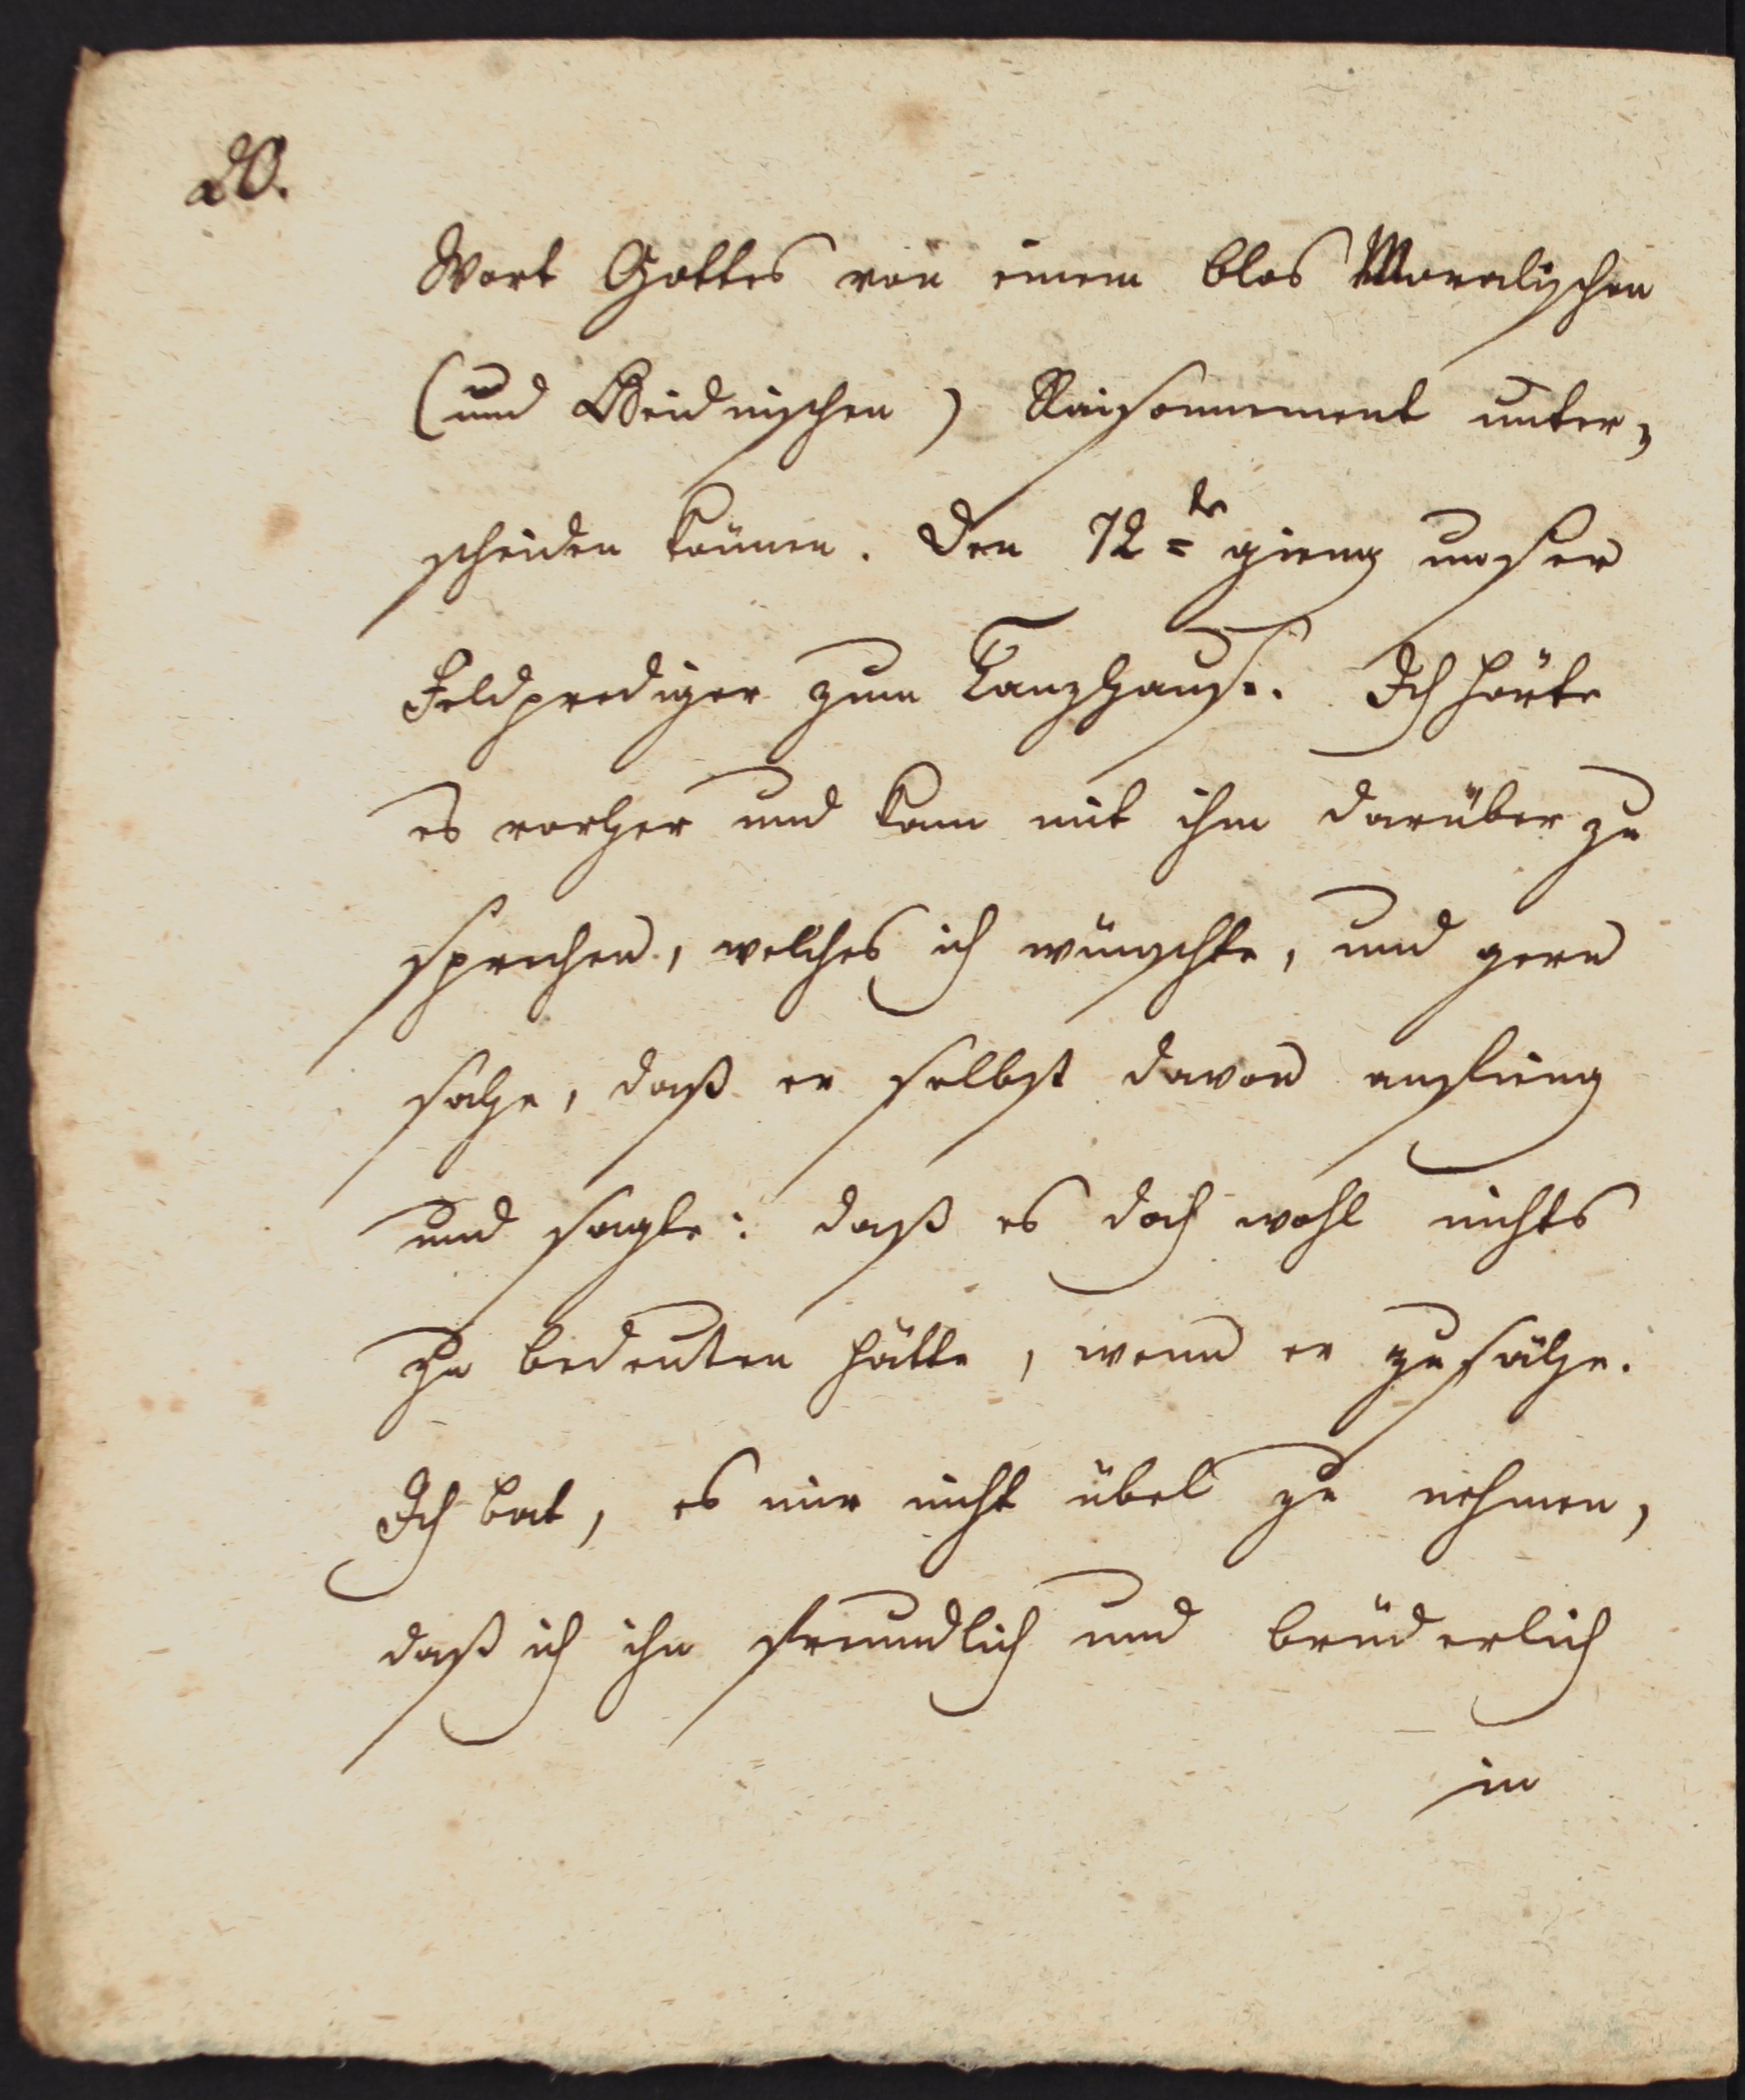 20.
Wort Gottes von einem blos Moralischen
(und Heidnischen) Raisonnement unter=
scheiden können. Den 12=te gieng unser
Feldprediger zum Tanzhause. Ich hörte
es vorher und kam mit ihm darüber zu
sprechen, welches ich wünschte, und gern
sahe, daß er selbst davon anfieng
und sagte: daß es doch wohl nichts
zu bedeuten hätte, wenn er zusähe.
Ich bat, es mir nicht übel zu nehmen,
daß ich ihn freundlich und brüderlich
in